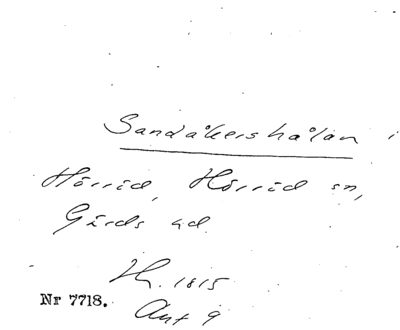 Sandåkershålan i
Hörröd, Hörröd sn,
Gärds hd.
Hy. 1815
Nr 7718.
Akt 9